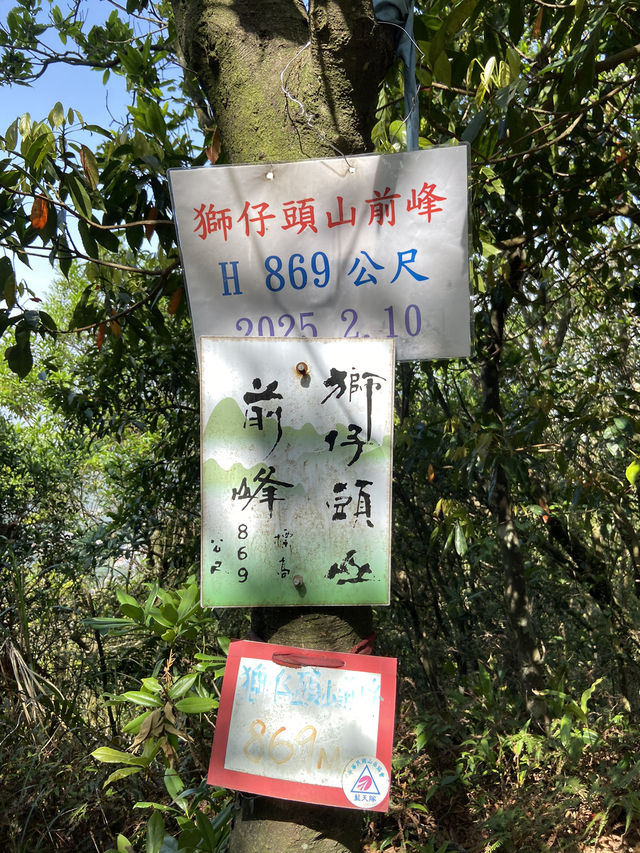 獅仔頭山前峰
H 869 公尺
2025 2.10
獅仔頭山
前峰
標高
869
公尺
獅仔頭山前峰
869M
藍天隊